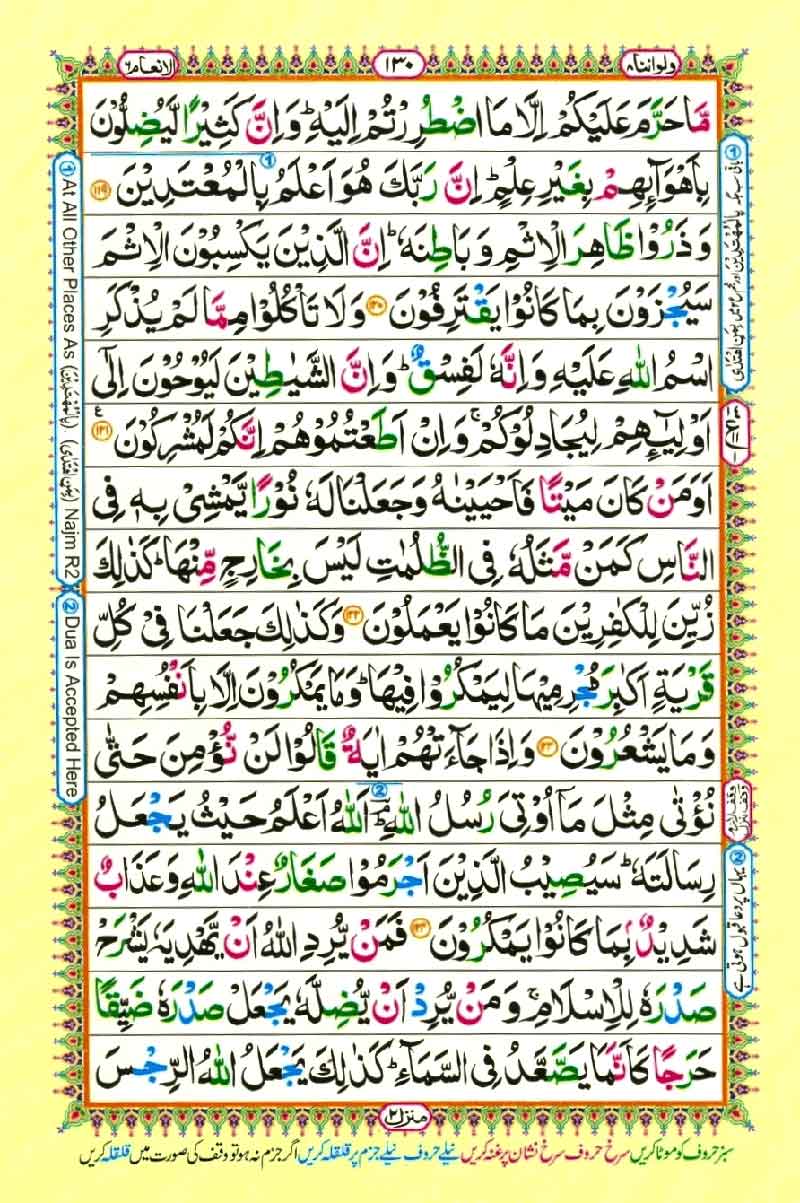 ولواننا ٨
١٣٠
الانعام ٦
مَّا حَرَّمَ عَلَيْكُمْ اِلَّا مَا اضْطُرِرْتُمْ اِلَيْهِ ؕ وَاِنَّ كَثِيْرًا لَّيُضِلُّوْنَ
بِاَهْوَآئِهِمْ بِغَيْرِ عِلْمٍ ؕ اِنَّ رَبَّكَ هُوَ اَعْلَمُ بِالْمُعْتَدِيْنَ ﴿۱۱۹﴾
وَذَرُوْا ظَاهِرَ الْاِثْمِ وَبَاطِنَهٗ ؕ اِنَّ الَّذِيْنَ يَكْسِبُوْنَ الْاِثْمَ
سَيُجْزَوْنَ بِمَا كَانُوْا يَقْتَرِفُوْنَ ﴿۱۲۰﴾ وَلَا تَاْكُلُوْا مِمَّا لَمْ يُذْكَرِ
اسْمُ اللّٰهِ عَلَيْهِ وَاِنَّهٗ لَفِسْقٌ ؕ وَاِنَّ الشَّيٰطِيْنَ لَيُوْحُوْنَ اِلٰٓى
اَوْلِيٰٓئِهِمْ لِيُجَادِلُوْكُمْ ۚ وَاِنْ اَطَعْتُمُوْهُمْ اِنَّكُمْ لَمُشْرِكُوْنَ ﴿۱۲۱﴾
اَوَمَنْ كَانَ مَيْتًا فَاَحْيَيْنٰهُ وَجَعَلْنَا لَهٗ نُوْرًا يَّمْشِىْ بِهٖ فِى
النَّاسِ كَمَنْ مَّثَلُهٗ فِى الظُّلُمٰتِ لَيْسَ بِخَارِجٍ مِّنْهَا ؕ كَذٰلِكَ
زُيِّنَ لِلْكٰفِرِيْنَ مَا كَانُوْا يَعْمَلُوْنَ ﴿۱۲۲﴾ وَكَذٰلِكَ جَعَلْنَا فِىْ كُلِّ
قَرْيَةٍ اَكٰبِرَ مُجْرِمِيْهَا لِيَمْكُرُوْا فِيْهَا ؕ وَمَا يَمْكُرُوْنَ اِلَّا بِاَنْفُسِهِمْ
وَمَا يَشْعُرُوْنَ ﴿۱۲۳﴾ وَاِذَا جَآءَتْهُمْ اٰيَةٌ قَالُوْا لَنْ نُّؤْمِنَ حَتّٰى
نُؤْتٰى مِثْلَ مَاۤ اُوْتِىَ رُسُلُ اللّٰهِ ؔۘ اَللّٰهُ اَعْلَمُ حَيْثُ يَجْعَلُ
رِسَالَتَهٗ ؕ سَيُصِيْبُ الَّذِيْنَ اَجْرَمُوْا صَغَارٌ عِنْدَ اللّٰهِ وَعَذَابٌ
شَدِيْدٌۢ بِمَا كَانُوْا يَمْكُرُوْنَ ﴿۱۲۴﴾ فَمَنْ يُّرِدِ اللّٰهُ اَنْ يَّهْدِيَهٗ يَشْرَحْ
صَدْرَهٗ لِلْاِسْلَامِ ۚ وَمَنْ يُّرِدْ اَنْ يُّضِلَّهٗ يَجْعَلْ صَدْرَهٗ ضَيِّقًا
حَرَجًا كَاَنَّمَا يَصَّعَّدُ فِى السَّمَآءِ ؕ كَذٰلِكَ يَجْعَلُ اللّٰهُ الرِّجْسَ
① At All Other Places As (بِالْمُهْتَدِيْنَ) (بِمَنِ اهْتَدٰى) Najm R2
② Dua Is Accepted Here
② یہاں پر دعا قبول ہوتی ہے
منزل ٢
سبز حروف کو موٹا کریں سرخ حروف سرخ نشان پر غنہ کریں نیلے حروف نیلے جزم پر قلقلہ کریں اگر جزم نہ ہو تو وقف کی صورت میں قلقلہ کریں